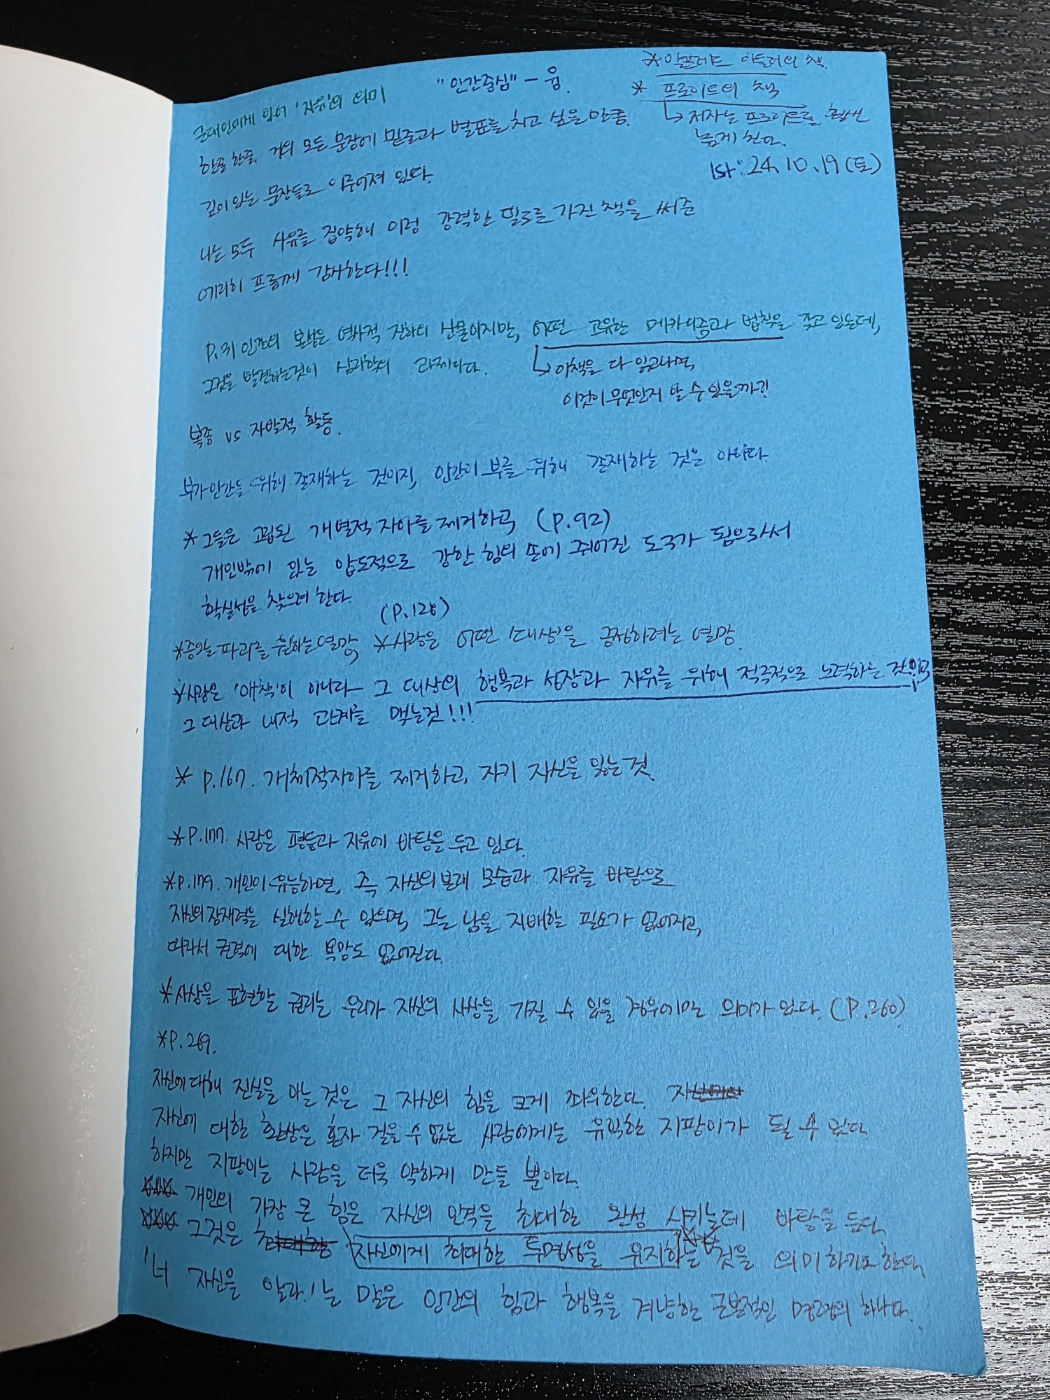 근대인에게 있어 '자유'의 의미
"인간중심" - 융.
* 알프레드 아들러의 책.
* 프로이트의 책
↳ 저자는 프로이트를 훨씬
높게 친다.
1st: 24. 10. 19 (토)
한줄 한줄, 거의 모든 문장에 밑줄과 별표를 치고 싶을 만큼,
깊이 있는 문장들로 이루어져 있다.
나는 모두 사유를 집약해 이정 강력한 필로를 가진 책을 써준
에리히 프롬께 감사한다!!!
P.31 인간의 본성은 역사적 진화의 산물이지만, 어떤 고유한 메카니즘과 법칙을 갖고 있는데,
그것을 발견하는것이 심리학의 과제이다.
↳ 이책을 다 읽고나면,
이것이 무엇인지 알 수 있을까?!
복종 vs 자발적 활동.
부가 인간을 위해 존재하는 것이지, 인간이 부를 위해 존재하는 것은 아니다.
* 그들은 고립된 개별적 자아를 제거하고 (P.92)
개인밖에 있는 압도적으로 강한 힘의 손에 쥐어진 도구가 됨으로써
확실성을 찾으려 한다.
(P.128)
* 증오는 파괴를 원하는 열망, * 사랑은 어떤 '대상'을 긍정하려는 열망.
* 사랑은 '애착'이 아니라 그 대상의 행복과 성장과 자유를 위해 적극적으로 노력하는 것이며
그 대상과 내적 관계를 맺는것!!!
* P.167. 개체적자아를 제거하고, 자기 자신을 잃는 것.
* P.177. 사랑은 평등과 자유에 바탕을 두고 있다.
* P.179. 개인이 유능하면, 즉 자신의 본래 모습과 자유를 바탕으로
자신의 잠재력을 실현할 수 있으면, 그는 남을 지배할 필요가 없어지고,
따라서 권력에 대한 욕망도 없어진다.
* 사상을 표현할 권리는 우리가 자신의 사상을 가질 수 있을 경우에만 의미가 있다. (P.260)
* P.269.
자신에 대해 진실을 아는 것은 그 자신의 힘을 크게 좌우한다. 자
자신에 대한 환상은 혼자 걸을 수 없는 사람에게는 유익한 지팡이가 될 수 있다.
하지만 지팡이는 사람을 더욱 약하게 만들 뿐이다.
*** 개인의 가장 큰 힘은 자신의 인격을 최대한 완성 시키는데 바탕을 둔다,
*** 그것은 자신에게 최대한 투명성을 유지하는 것을 의미하기도 한다,
'너 자신을 알라'는 말은 인간의 힘과 행복을 겨냥한 근본적인 명령의 하나다.